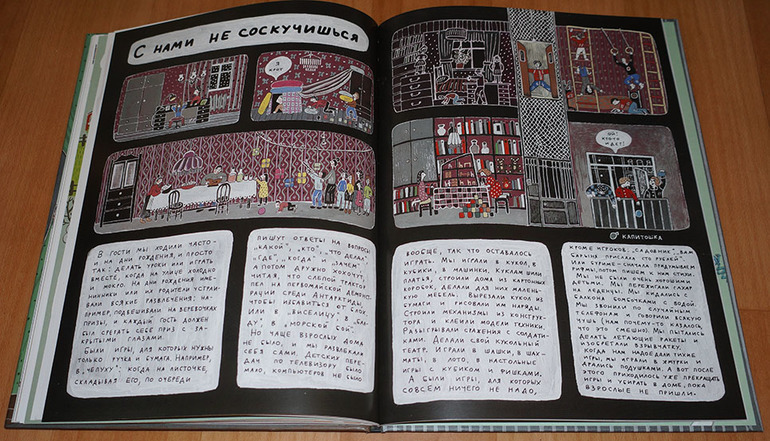 С нами не соскучишься
Я
КРОТ
ОЙ!
КТО-ТО
ИДЕТ!
КАПИТОШКА
В гости мы ходили часто-
и на дни рождения, и просто
так: делать уроки или играть
вместе, когда на улице холодно
и мокро. На дни рождения име-
нинники или их родители устраи-
вали всякие развлечения: на-
пример, подвешивали на веревочках
призы, и каждый гость должен
был срезать себе приз с за-
крытыми глазами.
Были игры, для которых нужны
только ручка и бумага. Например,
в „чепуху": когда на листочке,
складывая его, по очереди
пишут ответы на вопросы
„какой", „кто", „что делал",
„где", „когда" и „зачем",
а потом дружно хохочут,
читая, что слепой трактор
пел на первомайской демонст-
рации среди Антарктиды,
чтобы избавиться от блох.
Или в „виселицу", в „бал-
ду", в „морской бой".
Но чаще взрослых дома
не было, и мы развлекали
себя сами. Детских пере-
дач по телевизору было
мало, компьютеров не было
вообще, так что оставалось
играть. Мы играли в кукол, в
кубики, в машинки. Куклам шили
платья, строили дома из картонных
коробок, делали для них малень-
кую мебель. Вырезали кукол из
бумаги и рисовали им наряды.
Строили механизмы из конструк-
тора и клеили модели техники.
Разыгрывали сражения с солдати-
ками. Делали свой кукольный
театр. Играли в шашки, в шах-
маты, в лото, в настольные
игры с кубиком и фишками.
А были игры, для которых
совсем ничего не надо,
кроме игроков: „садовник", „вам
барыня прислала сто рублей".
Или буриме - сначала придумываем
рифмы, потом пишем к ним стихи.
Мы не были очень хорошими
детьми. Мы пережигали спички
на леднику. Мы кидались с
балкона бомбочками с водой.
Мы звонили по случайным
телефонам и говорили всякую
чушь (нам почему-то казалось,
что это смешно). Мы пытались
делать летающие ракеты и
изобретали взрывчатку.
Когда нам надоедали тихие
игры, мы играли в жмурки и
дрались подушками. А вот после
этого приходилось уже прекращать
игры и убирать в доме, пока
взрослые не пришли.